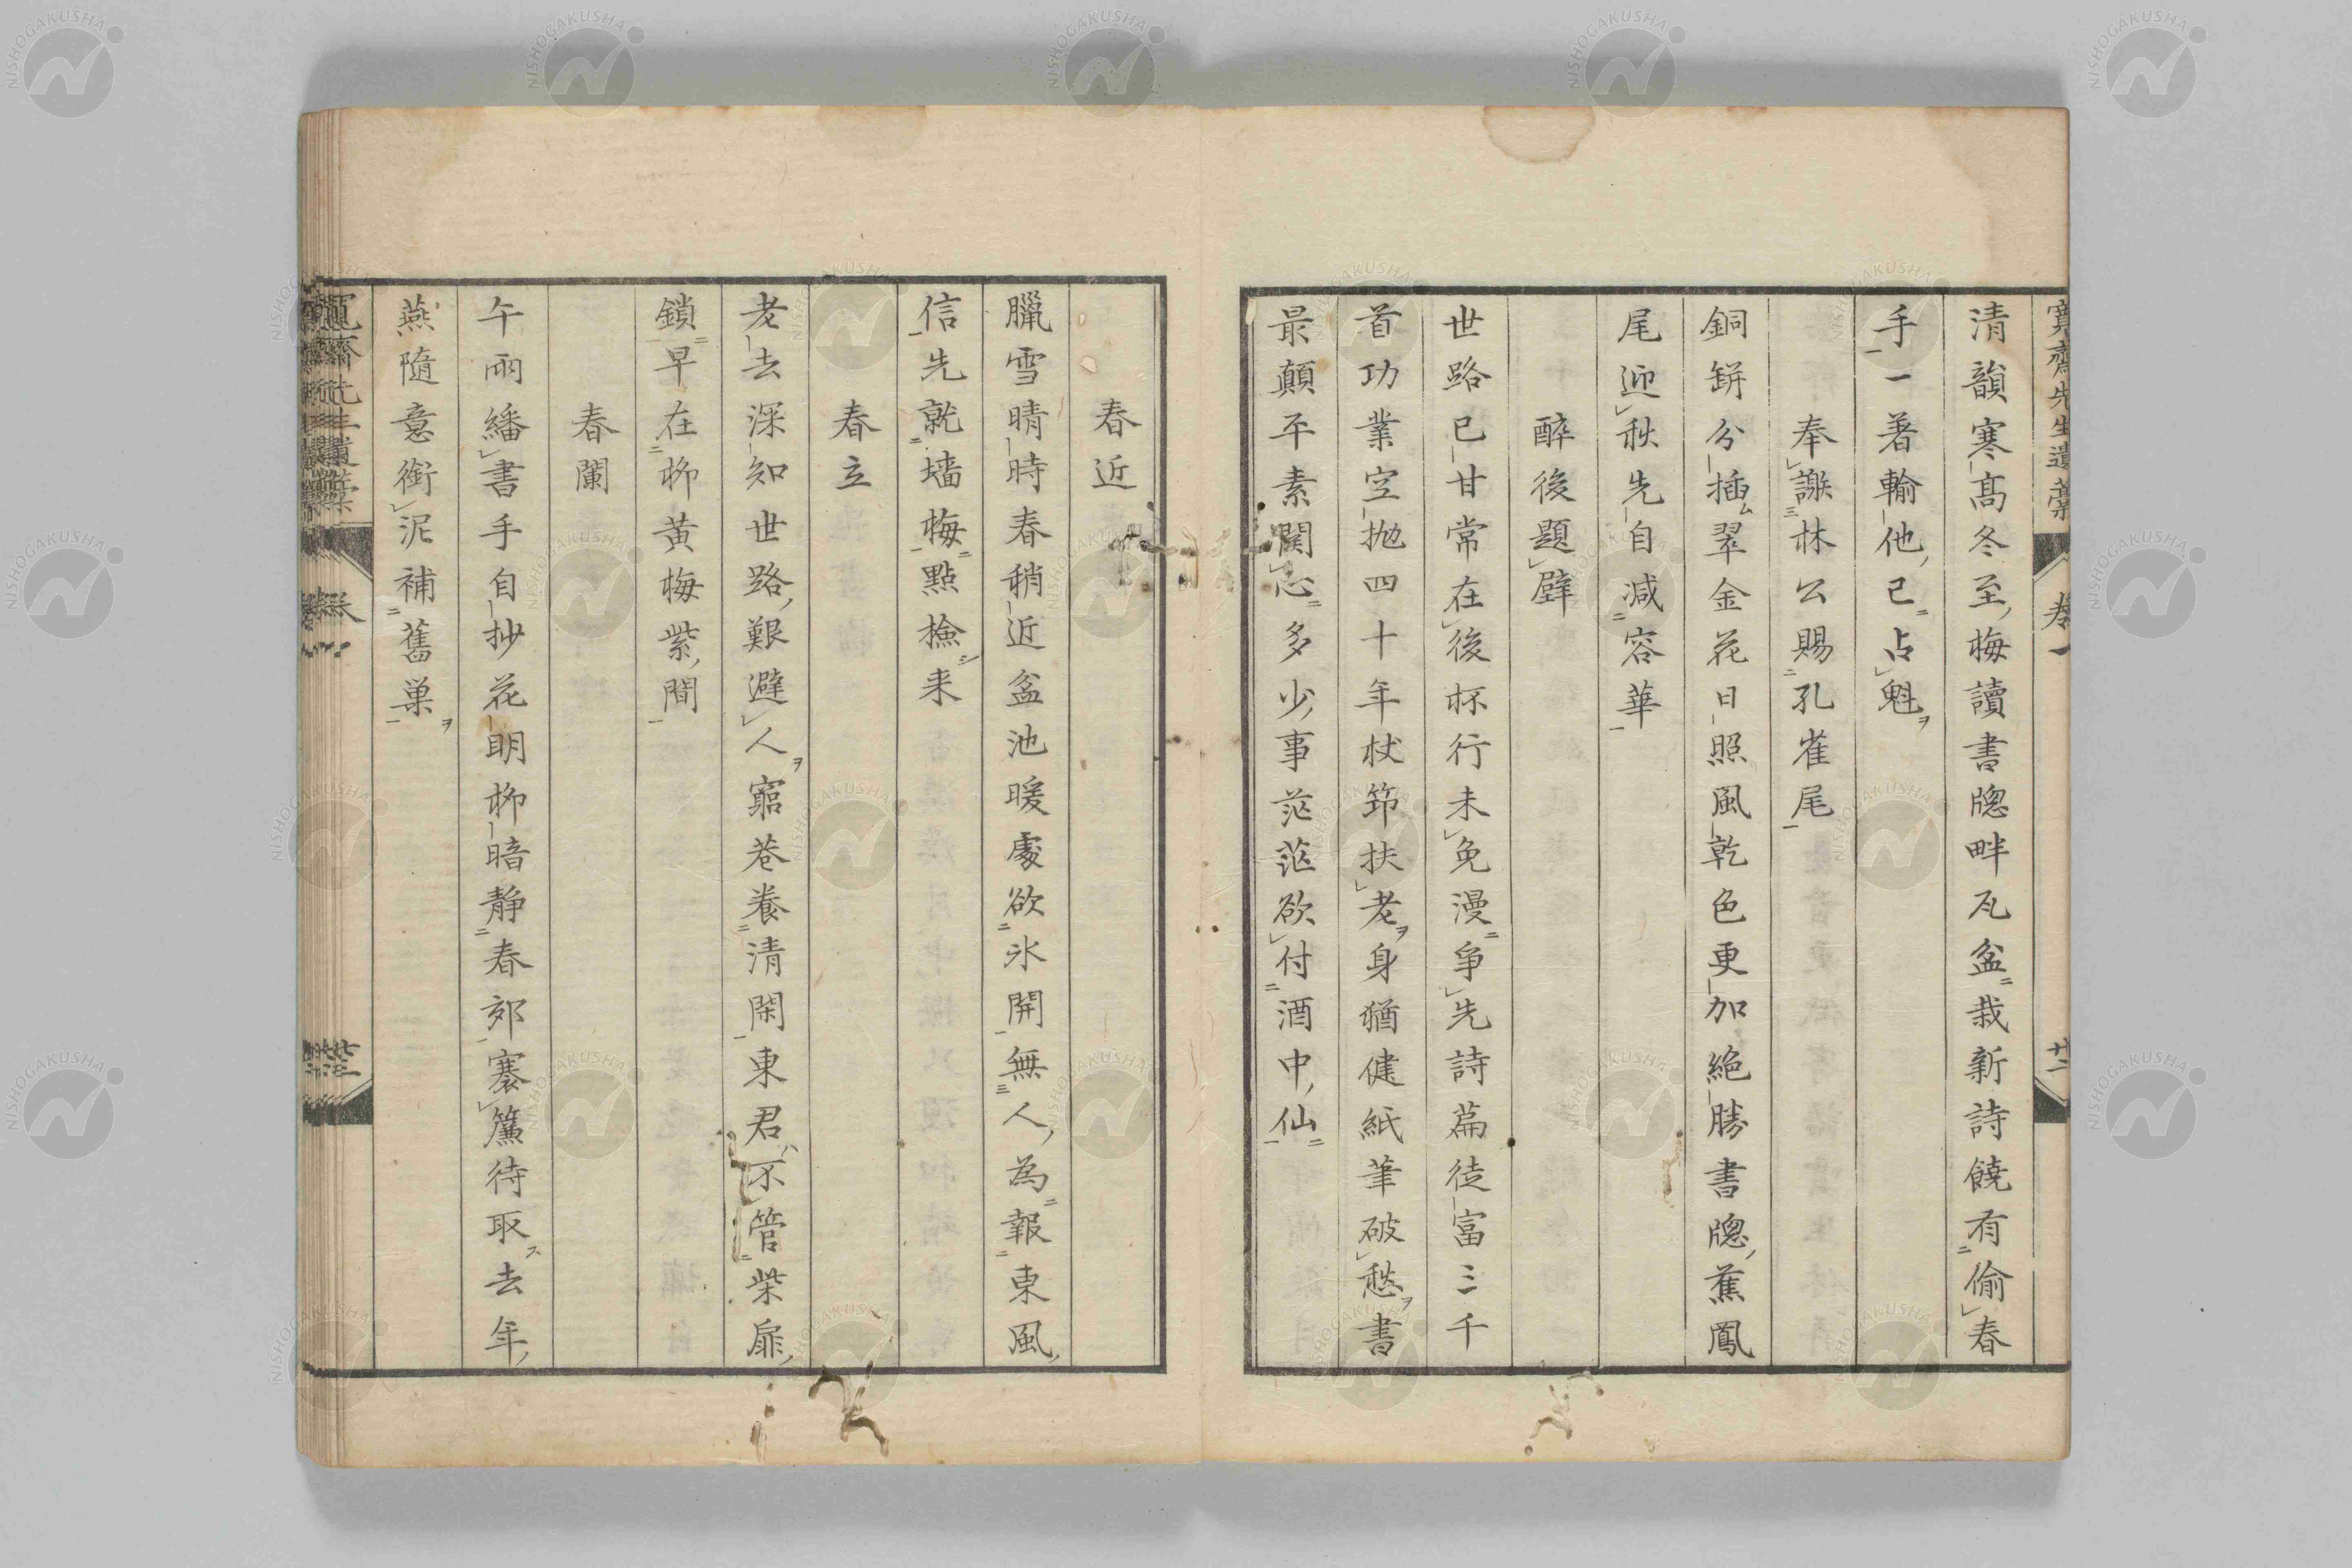 寬齋先生遺稾 卷一 廿一
清韻寒高冬至梅讀書牕畔瓦盆栽新詩饒有偷春
手一著輸他已占魁
奉謝林公賜孔雀尾
銅缾分插翠金花日照風乾色更加絶勝書牕蕉鳳
尾迎秋先自減容華
醉後題壁
世路已甘常在後杯行未免漫爭先詩篇徒富三千
首功業空拋四十年杖節扶老身猶健紙筆破愁書
最顛平素關心多少事茫茫欲付酒中仙
春近
臘雪晴時春稍近盆池暖處欲氷開無人為報東風
信先就墻梅點檢来
春立
老去深知世路艱避人窮巷養清閑東君不管柴扉
鎖早在柳黃梅紫間
春闌
午雨繙書手自抄花明柳暗靜春郊褰簾待取去年
燕隨意銜泥補舊巢
NISHOGAKUSHA